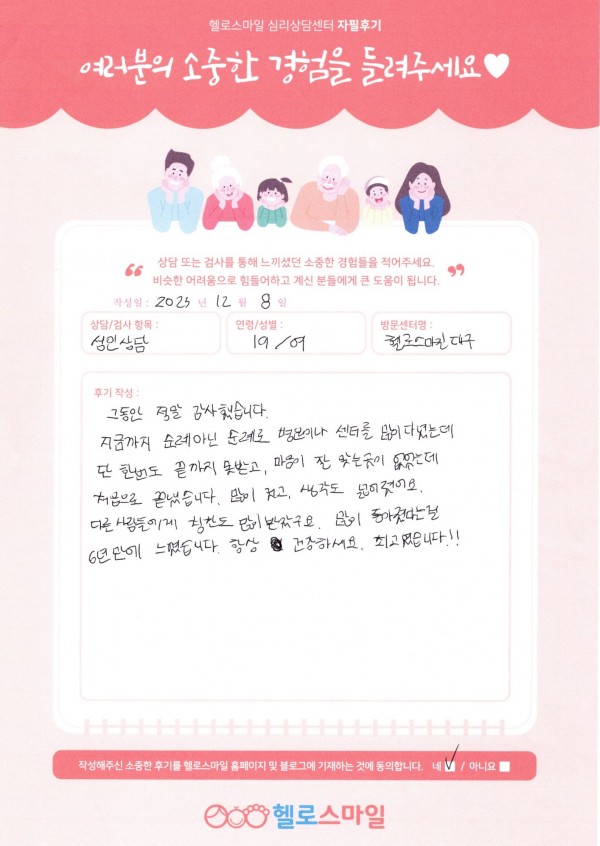 헬로스마일 심리상담센터 자필후기
여러분의 소중한 경험을 들려주세요♥
상담 또는 검사를 통해 느끼셨던 소중한 경험들을 적어주세요.
비슷한 어려움으로 힘들어하고 계신 분들에게 큰 도움이 됩니다.
작성일 : 2023 년 12 월 8 일
상담/검사 항목 : 연령/성별 : 방문센터명 :
성인상담 19 / 여 헬로스마일 대구
후기 작성 :
그동안 정말 감사했습니다.
지금까지 순례아닌 순례로 병원이나 센터를 많이다녔는데
단 한번도 끝까지 못받고, 마음이 잘 맞는곳이 없었는데
처음으로 끝냈습니다. 많이 컸고, 생각도 넓어졌어요.
다른 사람들에게 칭찬도 많이받았구요. 많이 좋아졌다는걸
6년만에 느꼈습니다. 항상 건강하세요. 최고였습니다!!
작성해주신 소중한 후기를 헬로스마일 홈페이지 및 블로그에 기재하는 것에 동의합니다. 네 ✓ / 아니요
헬로스마일